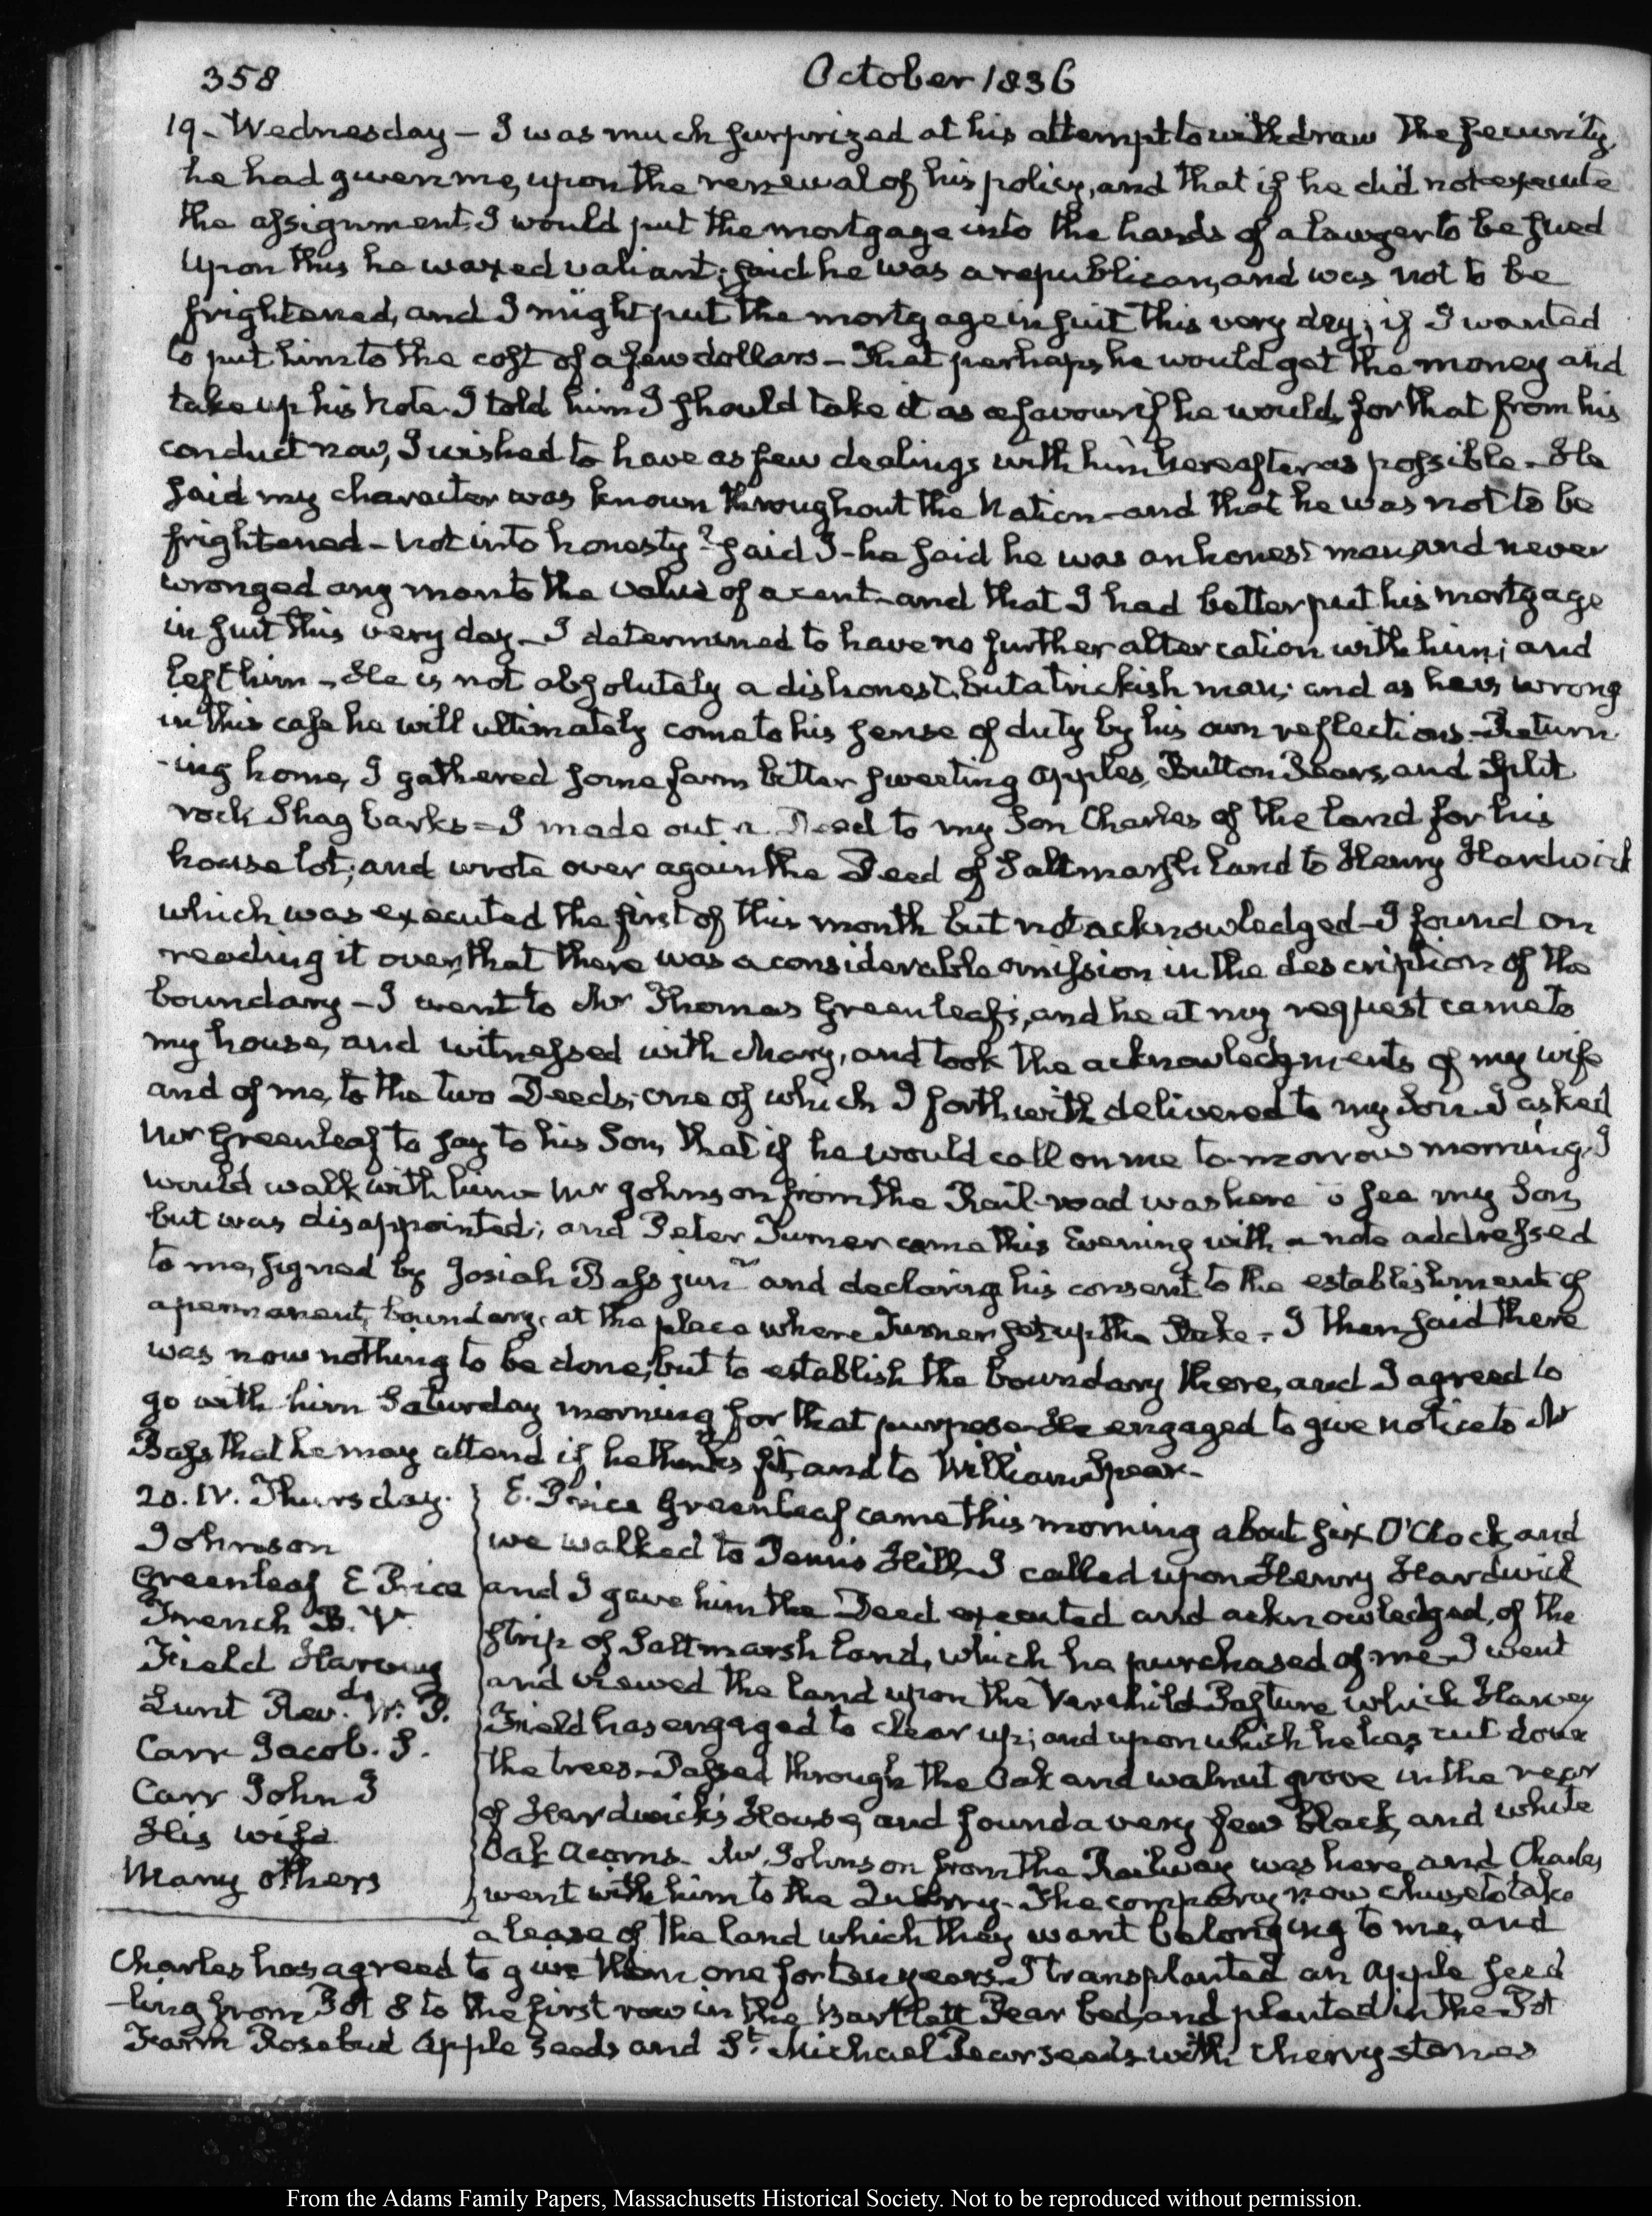 358 October 1836
19. Wednesday – I was much surprized at his attempt to withdraw the security,
he had given me, upon the renewal of his policy, and that if he did not execute
the assignment, I would put the mortgage into the hands of a lawyer to be sued
Upon this he waxed valiant; said he was a republican, and was not to be
frightened, and I might put the mortgage in suit this very day; if I wanted
to put him to the cost of a few dollars – That perhaps he would get the money and
take up his Note. I told him I should take it as a favour if he would, for that from his
conduct now, I wished to have as few dealings with him hereafter as possible – He
said my character was known throughout the Nation – and that he was not to be
frightened – Not into honesty? said I – he said he was an honest man, and never
wronged any man to the value of a cent – and that I had better put his mortgage
in suit this very day – I determined to have no further altercation with him; and
left him – He is not absolutely a dishonest, but a trickish man; and as he is wrong
in this case he will ultimately come to his sense of duty by his own reflections – Return
-ing home, I gathered some farm bitter sweeting apples, Button Pears, and Split
rock Shagbarks – I made out a Deed to my Son Charles of the land for his
house lot; and wrote over again the Deed of Saltmarsh land to Henry Hardwick
which was executed the first of this month but not acknowledged – I found on
reading it over, that there was a considerable omission in the description of the
boundary – I went to Mr Thomas Greenleaf's, and he at my request came to
my house, and witnessed with Mary, and took the acknowledgments of my wife
and of me, to the two Deeds; one of which I forthwith delivered to my Son. I asked
Mr Greenleaf to say to his Son, that if he would call on me to-morrow morning, I
would walk with him – Mr Johnson from the Rail-road was here to see my Son,
but was disappointed; and Peter Turner came this Evening with a note addressed
to me, signed by Josiah Bass junr and declaring his consent to the establishment of
a permanent boundary, at the place where Turner set up the Stake – I then said there
was now nothing to be done, but to establish the boundary there, and I agreed to
go with him Saturday morning for that purpose – He engaged to give notice to Mr
Bass that he may attend if he thinks fit, and to William Spear –
20. IV. Thursday.
Johnson
Greenleaf E Price
French B. V.
Field Harvey
Lunt Revd. W. P.
Carr Jacob. S.
Carr John J
His wife
Many others
E. Price Greenleaf came this morning about six O'Clock, and
we walked to Penn's Hill – I called upon Henry Hardwick
and I gave him the Deed executed and acknowledged, of the
strip of Saltmarsh land, which he purchased of me – I went
and viewed the land upon the Verchild Pasture which Harvey
Field has engaged to clear up; and upon which he has cut down
the trees – Passed through the Oak and walnut grove in the rear
of Hardwick's House, and found a very few black, and white
Oak acorns – Mr Johnson from the Railway was here, and Charles
went with him to the Quarry – The company now chuse to take
a lease of the land which they want belonging to me, and
Charles has agreed to give them one for ten years. I transplanted an Apple seed
-ling from Pot 8 to the first row in the Bartlett Pear bed, and planted in the Pot
Farm Rosebud Apple seeds and St. Michael Pear seeds with cherry stones
From the Adams Family Papers, Massachusetts Historical Society. Not to be reproduced without permission.